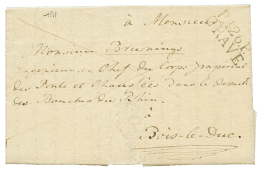 à Monsieur
Monsieur Brunings
Ingenieur en Chef du Corps Imperial
des Ponts et Chaussées dans le Depart
des Bouches du Rhin
à
Bois-le-Duc.
GRAVE